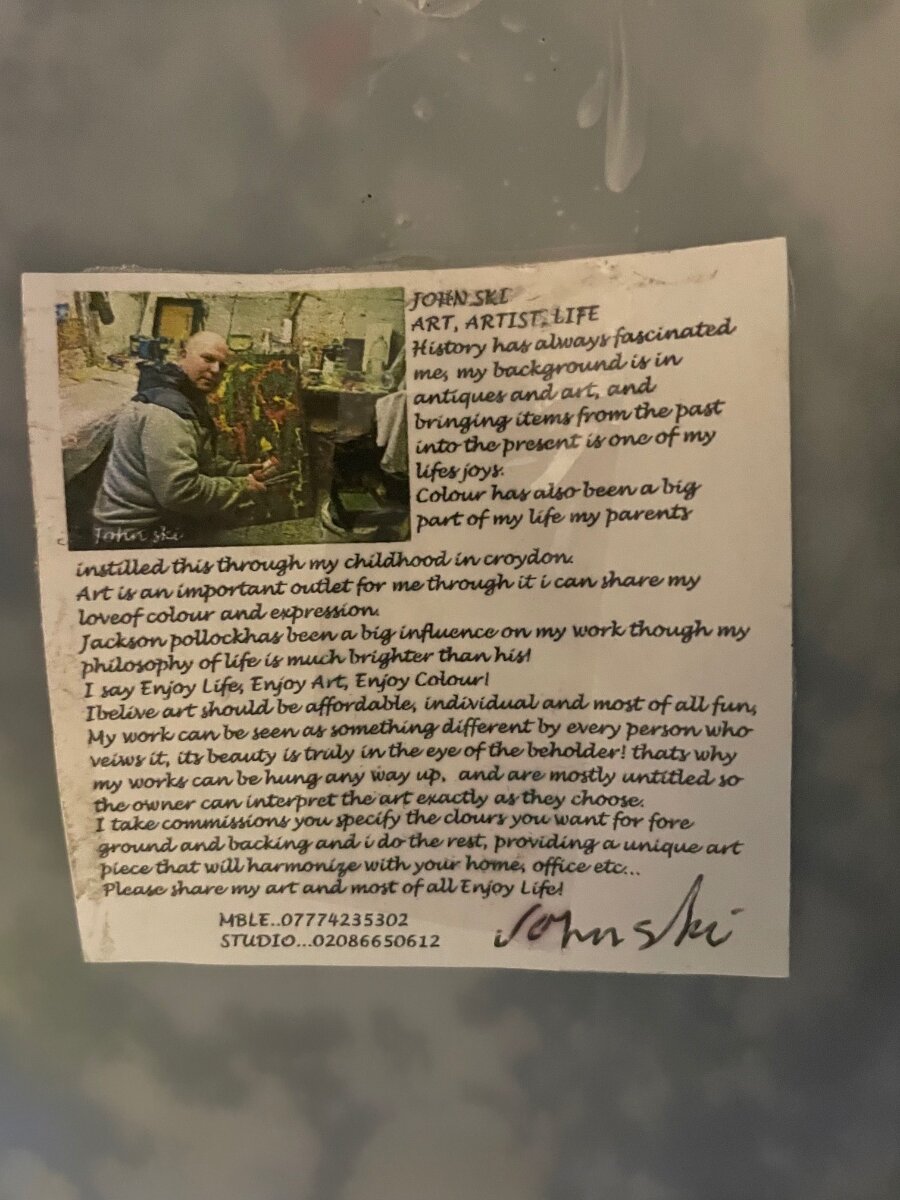 JOHN SKI
ART, ARTIST, LIFE
History has always fascinated
me, my background is in
antiques and art, and
bringing items from the past
into the present is one of my
lifes joys.
Colour has also been a big
part of my life my parents
John ski
instilled this through my childhood in croydon.
Art is an important outlet for me through it i can share my
loveof colour and expression.
Jackson pollockhas been a big influence on my work though my
philosophy of life is much brighter than his!
I say Enjoy Life, Enjoy Art, Enjoy Colour!
Ibelive art should be affordable, individual and most of all fun,
My work can be seen as something different by every person who
veiws it, its beauty is truly in the eye of the beholder! thats why
my works can be hung any way up, and are mostly untitled so
the owner can interpret the art exactly as they choose.
I take commissions you specify the clours you want for fore
ground and backing and i do the rest, providing a unique art
piece that will harmonize with your home, office etc...
Please share my art and most of all Enjoy Life!
MBLE..07774235302
STUDIO...02086650612
John ski